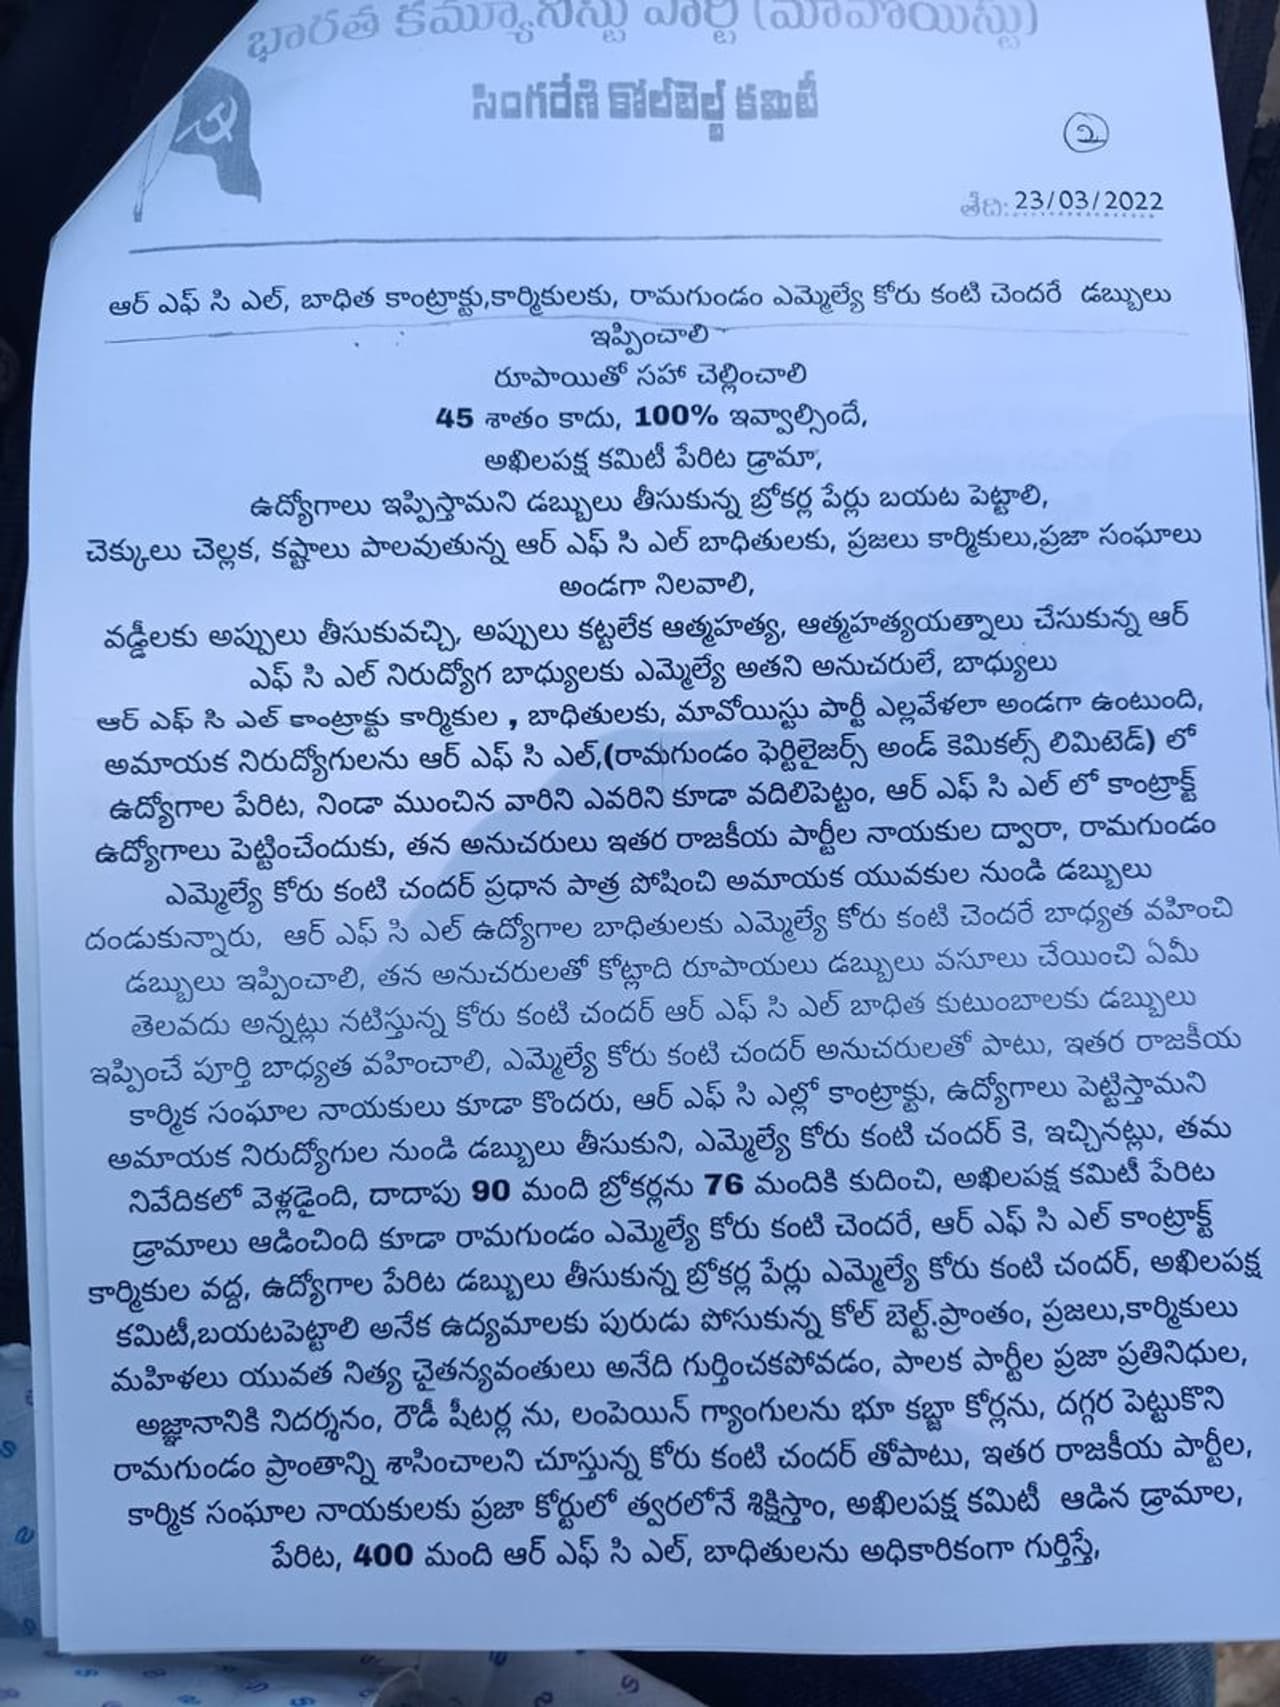 భారత కమ్యూనిస్టు పార్టీ (మావోయిస్టు)
సింగరేణి కోల్‌బెల్ట్ కమిటీ
2
తేది: 23/03/2022
ఆర్ ఎఫ్ సి ఎల్, బాధిత కాంట్రాక్టు,కార్మికులకు, రామగుండం ఎమ్మెల్యే కోరు కంటి చెందరే డబ్బులు
ఇప్పించాలి
రూపాయితో సహా చెల్లించాలి
45 శాతం కాదు, 100% ఇవ్వాల్సిందే,
అఖిలపక్ష కమిటీ పేరిట డ్రామా,
ఉద్యోగాలు ఇప్పిస్తామని డబ్బులు తీసుకున్న బ్రోకర్ల పేర్లు బయట పెట్టాలి,
చెక్కులు చెల్లక, కష్టాలు పాలవుతున్న ఆర్ ఎఫ్ సి ఎల్ బాధితులకు, ప్రజలు కార్మికులు,ప్రజా సంఘాలు
అండగా నిలవాలి,
వడ్డీలకు అప్పులు తీసుకువచ్చి, అప్పులు కట్టలేక ఆత్మహత్య, ఆత్మహత్యయత్నాలు చేసుకున్న ఆర్
ఎఫ్ సి ఎల్ నిరుద్యోగ బాధ్యులకు ఎమ్మెల్యే అతని అనుచరులే, బాధ్యులు
ఆర్ ఎఫ్ సి ఎల్ కాంట్రాక్టు కార్మికుల , బాధితులకు, మావోయిస్టు పార్టీ ఎల్లవేళలా అండగా ఉంటుంది,
అమాయక నిరుద్యోగులను ఆర్ ఎఫ్ సి ఎల్,(రామగుండం ఫెర్టిలైజర్స్ అండ్ కెమికల్స్ లిమిటెడ్) లో
ఉద్యోగాల పేరిట, నిండా ముంచిన వారిని ఎవరిని కూడా వదిలిపెట్టం, ఆర్ ఎఫ్ సి ఎల్ లో కాంట్రాక్ట్
ఉద్యోగాలు పెట్టించేందుకు, తన అనుచరులు ఇతర రాజకీయ పార్టీల నాయకుల ద్వారా, రామగుండం
ఎమ్మెల్యే కోరు కంటి చందర్ ప్రధాన పాత్ర పోషించి అమాయక యువకుల నుండి డబ్బులు
దండుకున్నారు, ఆర్ ఎఫ్ సి ఎల్ ఉద్యోగాల బాధితులకు ఎమ్మెల్యే కోరు కంటి చెందరే బాధ్యత వహించి
డబ్బులు ఇప్పించాలి, తన అనుచరులతో కోట్లాది రూపాయలు డబ్బులు వసూలు చేయించి ఏమీ
తెలవదు అన్నట్లు నటిస్తున్న కోరు కంటి చందర్ ఆర్ ఎఫ్ సి ఎల్ బాధిత కుటుంబాలకు డబ్బులు
ఇప్పించే పూర్తి బాధ్యత వహించాలి, ఎమ్మెల్యే కోరు కంటి చందర్ అనుచరులతో పాటు, ఇతర రాజకీయ
కార్మిక సంఘాల నాయకులు కూడా కొందరు, ఆర్ ఎఫ్ సి ఎల్లో కాంట్రాక్టు, ఉద్యోగాలు పెట్టిస్తామని
అమాయక నిరుద్యోగుల నుండి డబ్బులు తీసుకుని, ఎమ్మెల్యే కోరు కంటి చందర్ కె, ఇచ్చినట్లు, తమ
నివేదికలో వెళ్లడైంది, దాదాపు 90 మంది బ్రోకర్లను 76 మందికి కుదించి, అఖిలపక్ష కమిటీ పేరిట
డ్రామాలు ఆడించింది కూడా రామగుండం ఎమ్మెల్యే కోరు కంటి చెందరే, ఆర్ ఎఫ్ సి ఎల్ కాంట్రాక్ట్
కార్మికుల వద్ద, ఉద్యోగాల పేరిట డబ్బులు తీసుకున్న బ్రోకర్ల పేర్లు ఎమ్మెల్యే కోరు కంటి చందర్, అఖిలపక్ష
కమిటీ,బయటపెట్టాలి అనేక ఉద్యమాలకు పురుడు పోసుకున్న కోల్ బెల్ట్.ప్రాంతం, ప్రజలు,కార్మికులు
మహిళలు యువత నిత్య చైతన్యవంతులు అనేది గుర్తించకపోవడం, పాలక పార్టీల ప్రజా ప్రతినిధుల,
అజ్ఞానానికి నిదర్శనం, రౌడీ షీటర్ల ను, లంపెయిన్ గ్యాంగులను భూ కబ్జా కోర్లను, దగ్గర పెట్టుకొని
రామగుండం ప్రాంతాన్ని శాసించాలని చూస్తున్న కోరు కంటి చందర్ తోపాటు, ఇతర రాజకీయ పార్టీల,
కార్మిక సంఘాల నాయకులకు ప్రజా కోర్టులో త్వరలోనే శిక్షిస్తాం, అఖిలపక్ష కమిటీ ఆడిన డ్రామాల,
పేరిట, 400 మంది ఆర్ ఎఫ్ సి ఎల్, బాధితులను అధికారికంగా గుర్తిస్తే,